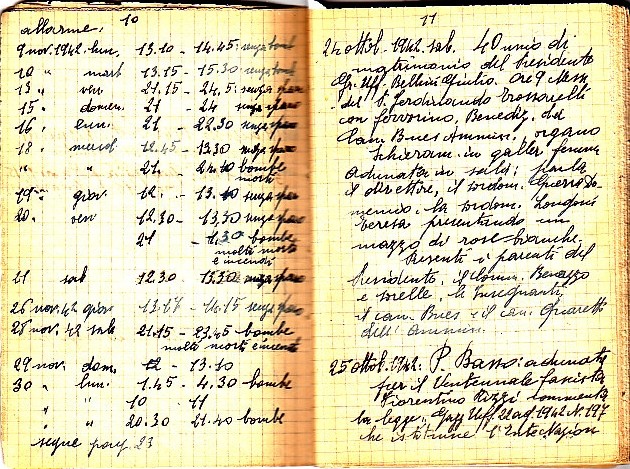 10
allarme:
9 nov. 1942. lun. 13.10 - 14.45. senza bombe
10 " mart 13.15 - 15.30 senza bombe
13 " ven 21.15 - 24.5: senza
15 " domen. 21 - 24 senza
16 " lun. 21 - 22.30 senza
18 " mercol 12.45 - 13.30 senza
" " 21. - 24.10 bombe
morti
19 " giov 12. - 13. senza
20. " ven 12.30 - 13.30 senza
21 - 1.30 bombe
molti morti
e incendi
21 sab 12.30 - 13.30 senza
26 nov. 42 giov - 14.15 senza
28 nov. 42 sab 21.15 - 23.45 bombe
molti morti e incendi
29 nov. dom. 12 - 13.10
30 " lun. 1.45 - 4.30 bombe
" " 10 11
" " 20.30 - 21.40 bombe
segue pag. 23
11
24 ottob. 1942. sab. 40 unio di
matrimonio del Presidente
Gr. Uff. Bellini Giulio. Ore 9 Messa
del S. Ferdinando
con fervorino, Bened. del
Can. Bues Ammin., organo
Schieram. in galler. femm.
adunata in sala; parla
il direttore, il sordom. Guerra Do-
menico. la sordom. Londoni
Teresa presentando un
mazzo di rose bianche.
Presenti i parenti del
Presidente, il Comm.
e sorelle, le Insegnanti
il can. Bues e il cav.
dell'ammin.
25 ottob. 1942. P. Basso: adunata
per il Ventennale fascista
Fiorentino Rizzi commenta
la legge, Gazz Uff. 22 ag. 1942 N. 197
che istituisce l'Ente Nazion